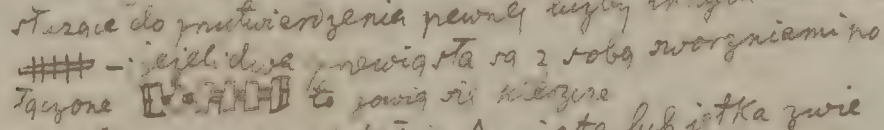 służące do przytwierdzenia pewnej liczby
– jeżeli dwa przewiąsła są z sobą sworzniami po
łączone to zowią się
lub jatka zwie